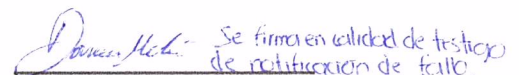 Se firma en calidad de testigo
de notificación de fallo